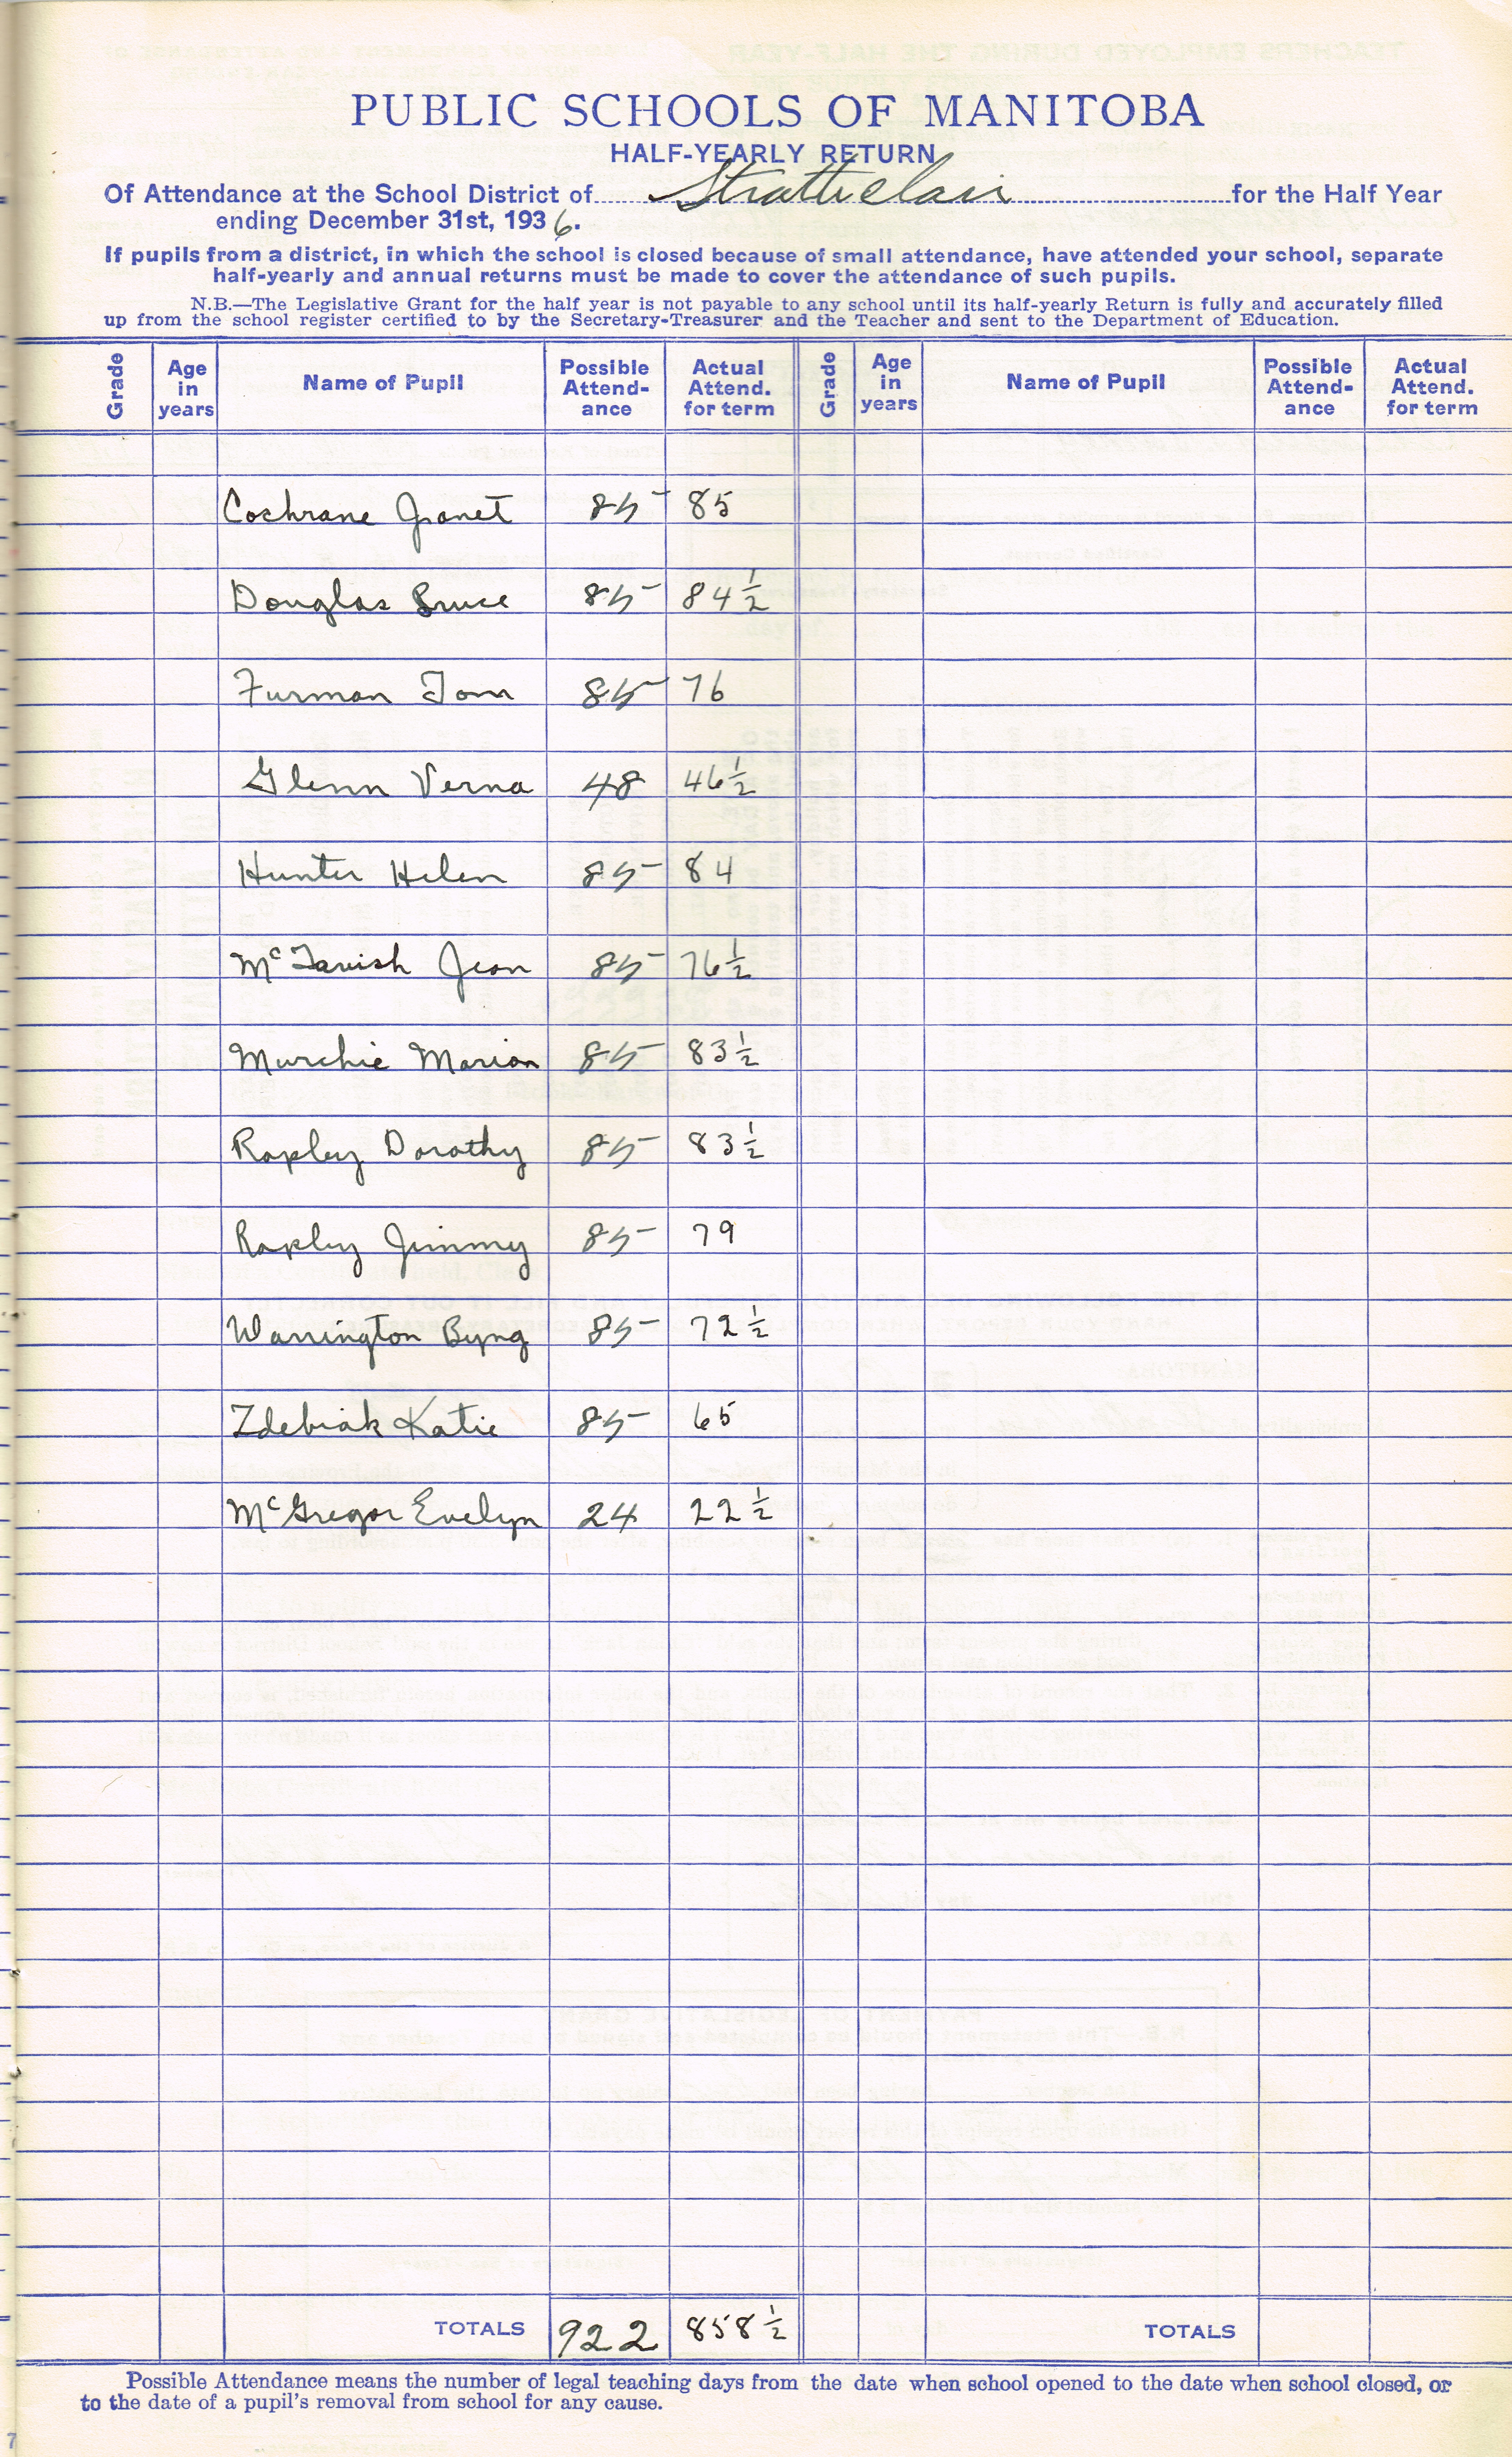 PUBLIC SCHOOLS OF MANITOBA
HALF-YEARLY RETURN
Of Attendance at the School District of Strathclair for the Half Year
ending December 31st, 1936.
If pupils from a district, in which the school is closed because of small attendance, have attended your school, separate
half-yearly and annual returns must be made to cover the attendance of such pupils.
N.B.—The Legislative Grant for the half year is not payable to any school until its half-yearly Return is fully and accurately filled
up from the school register certified to by the Secretary-Treasurer and the Teacher and sent to the Department of Education.
Grade Age in years Name of Pupil Possible Attend-ance Actual Attend. for term Grade Age in years Name of Pupil Possible Attend-ance Actual Attend. for term
Cochrane Janet 85 85
Douglas Bruce 85 84 1/2
Furman Tom 85 76
Glenn Verna 48 46 1/2
Hunter Helen 85 84
McTavish Jean 85 76 1/2
Murchie Marion 85 83 1/2
Rapley Dorothy 85 83 1/2
Rapley Jimmy 85 79
Warrington Byng 85 72 1/2
Zdebiak Katie 85 65
McGregor Evelyn 24 22 1/2
TOTALS 922 858 1/2 TOTALS
Possible Attendance means the number of legal teaching days from the date when school opened to the date when school closed, or
to the date of a pupil's removal from school for any cause.
7